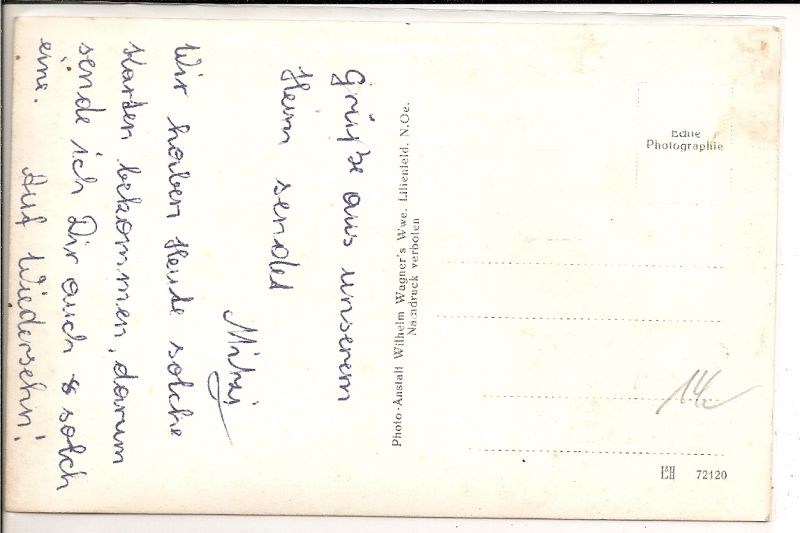 Grüße aus unserem
Heim sendet
Wir haben Heute solche
Karten bekommen, darum
sende ich Dir auch solch
eine. Auf Wiedersehn!
Photo-Anstalt Wilhelm Wagner's Wwe. Lilienfeld, N.Oe.
Nachdruck verboten
Echte
Photographie
14
72120